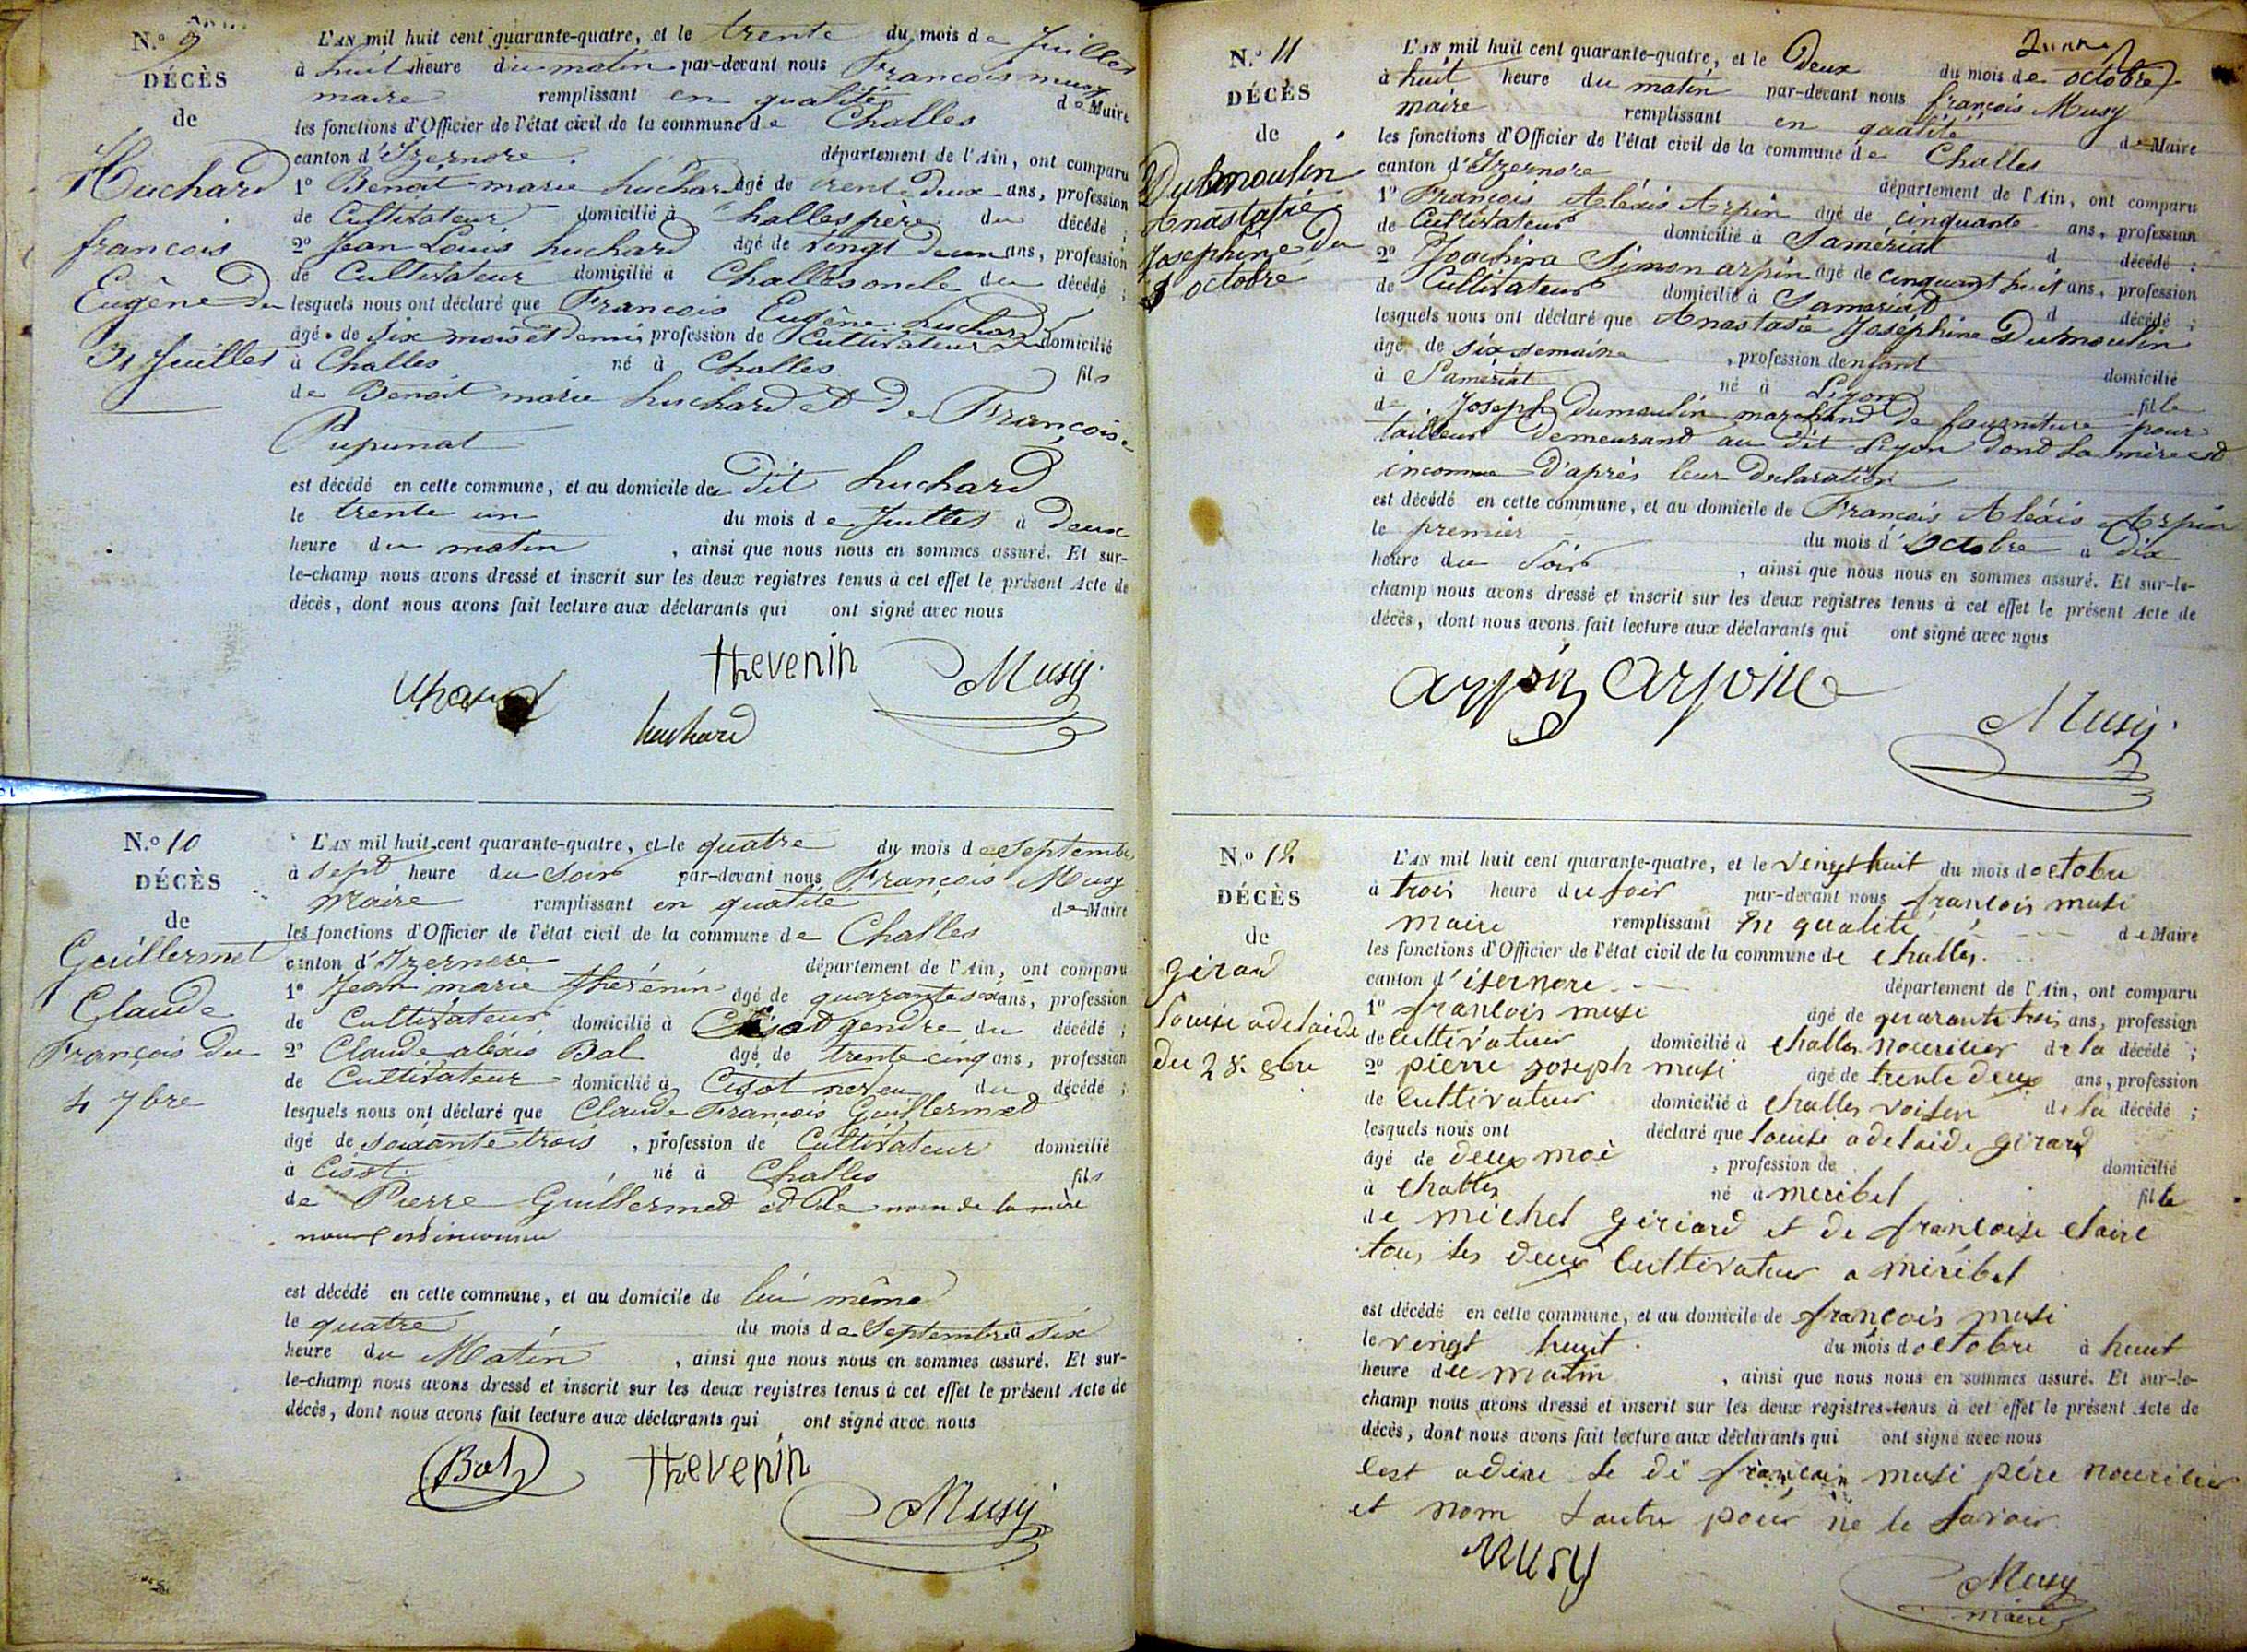 N.o 9
DÉCÈS
de
Huchard
françois
Eugène du
31 Juillet
L'AN mil huit cent quarante-quatre, et le trente du mois de Juillet
à huit heure du matin par-devant nous François musy
maire remplissant en qualité de Maire
les fonctions d'Officier de l'état civil de la commune de Challes
canton d'Izernore département de l'Ain, ont comparu
1o Benoit marie huchard âgé de trente deux ans, profession
de Cultivateur domicilié à Challes père du décédé ;
2o Jean Louis huchard âgé de vingt deux ans, profession
de Cultivateur domicilié à Challes oncle du décédé ;
lesquels nous ont déclaré que François Eugène huchard
âgé de six mois et demi profession de Cultivateur domicilié
à Challes né à Challes fils
de Benoit marie huchard et de Françoise
Pupunat
est décédé en cette commune, et au domicile du dit huchard
le trente un du mois de Juillet à deux
heure du matin , ainsi que nous nous en sommes assuré. Et sur-
le-champ nous avons dressé et inscrit sur les deux registres tenus à cet effet le présent Acte de
décès, dont nous avons fait lecture aux déclarants qui ont signé avec nous
thevenin Musy
huchard
N.o 10
DÉCÈS
de
Guillermet
Claude
François du
4 7bre
L'AN mil huit cent quarante-quatre, et le quatre du mois de Septembre
à sept heure du Soir par-devant nous François Musy
Maire remplissant en qualité de Maire
les fonctions d'Officier de l'état civil de la commune de Challes
canton d'Izernore département de l'Ain, ont comparu
1o Jean marie thévénin âgé de quarante six ans, profession
de Cultivateur domicilié à Cisot gendre du décédé ;
2o Claude aléxis Bal âgé de trente cinq ans, profession
de Cultivateur domicilié à Cisot neveu du décédé ;
lesquels nous ont déclaré que Claude François Guillermet
âgé de soixante trois , profession de Cultivateur domicilié
à Cisot né à Challes fils
de Pierre Guillermet et de nom de la mère
nous est inconnu
est décédé en cette commune, et au domicile de lui même
le quatre du mois de Septembre à six
heure du Matin , ainsi que nous nous en sommes assuré. Et sur-
le-champ nous avons dressé et inscrit sur les deux registres tenus à cet effet le présent Acte de
décès, dont nous avons fait lecture aux déclarants qui ont signé avec nous
Bal thevenin
Musy
N.o 11
DÉCÈS
de
Dumoulin
Anastasie
Josephine du
1 octobre
L'AN mil huit cent quarante-quatre, et le Deux du mois de octobre
à huit heure du matin par-devant nous françois Musy
maire remplissant en qualité de Maire
les fonctions d'Officier de l'état civil de la commune de Challes
canton d'Izernore département de l'Ain, ont comparu
1o François Aléxis Arpin âgé de cinquante ans, profession
de Cultivateur domicilié à Samériat d décédé ;
2o Joachim Simon arpin âgé de cinquant huit ans, profession
de Cultivateur domicilié à Samériat d décédé ;
lesquels nous ont déclaré que Anastasie Joséphine Dumoulin
âgé de six semaine , profession denfant domicilié
à Samériat né à Lyon fille
de Joseph Dumoulin marchand de fourniture pour
tailleur demeurand au dit Lyon dont la mère est
inconnue d'après leur Declaration
est décédé en cette commune, et au domicile de François Aléxis Arpin
le premier du mois d'Octobre à dix
heure du Soir , ainsi que nous nous en sommes assuré. Et sur-le-
champ nous avons dressé et inscrit sur les deux registres tenus à cet effet le présent Acte de
décès, dont nous avons fait lecture aux déclarants qui ont signé avec nous
arpin
Musy
N.o 12
DÉCÈS
de
girard
louise adelaide
du 28. 8bre
L'AN mil huit cent quarante-quatre, et le vingt huit du mois doctobre
à trois heure du soir par-devant nous françois musi
maire remplissant en qualité de Maire
les fonctions d'Officier de l'état civil de la commune de challes.
canton d'isernore département de l'Ain, ont comparu
1o françois musi âgé de quarante trois ans, profession
de cultivateur domicilié à challes nouricier de la décédé ;
2o pierre joseph musi âgé de trente deux ans, profession
de cultivateur domicilié à challes voisin de la décédé ;
lesquels nous ont déclaré que louise adelaide girard
âgé de deux moi , profession de domicilié
à challes né à meribel fille
de michel girard et de françoise claire
tous les deux cultivateur a miribel
est décédé en cette commune, et au domicile de françois musi
le vingt huit du mois doctobre à huit
heure du matin , ainsi que nous nous en sommes assuré. Et sur-le-
champ nous avons dressé et inscrit sur les deux registres tenus à cet effet le présent Acte de
décès, dont nous avons fait lecture aux déclarants qui ont signé avec nous
cest adire le di françoin musi père nouricier
et nom lautre pour ne le savoir
Musy
Musy
maire